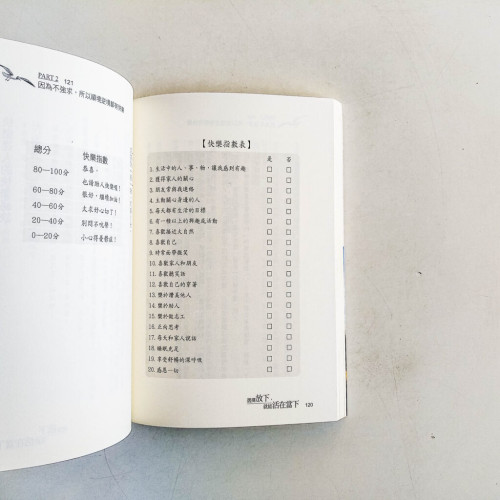 PART.2 121
因為不強求，所以
總分 快樂指數
80—100分 恭喜。
也請助人後僕喔！
60—80分 很好，繼續加油！
40—60分 太求好心切了！
20—40分 別悶不吭聲！
0—20分 小心得憂鬱症！
【快樂指數表】
是 否
1. 生活中的人、事、物，讓我感到有趣 □ □
2. 獲得家人的關心 □ □
3. 朋友常與我連絡 □ □
4. 主動關心身邊的人 □ □
5. 每天都有生活的目標 □ □
6. 有一種以上的興趣或活動 □ □
7. 喜歡接近大自然 □ □
8. 喜歡自己 □ □
9. 時常面帶微笑 □ □
10. 喜歡家人和朋友 □ □
11. 喜歡聽笑話 □ □
12. 喜歡自己的穿著 □ □
13. 樂於讚美他人 □ □
14. 樂於助人 □ □
15. 樂於做志工 □ □
16. 正向思考 □ □
17. 每天和家人說話 □ □
18. 睡眠充足 □ □
19. 享受舒暢的深呼吸 □ □
20. 感恩一切 □ □
願意放下，
就能活在當下 120